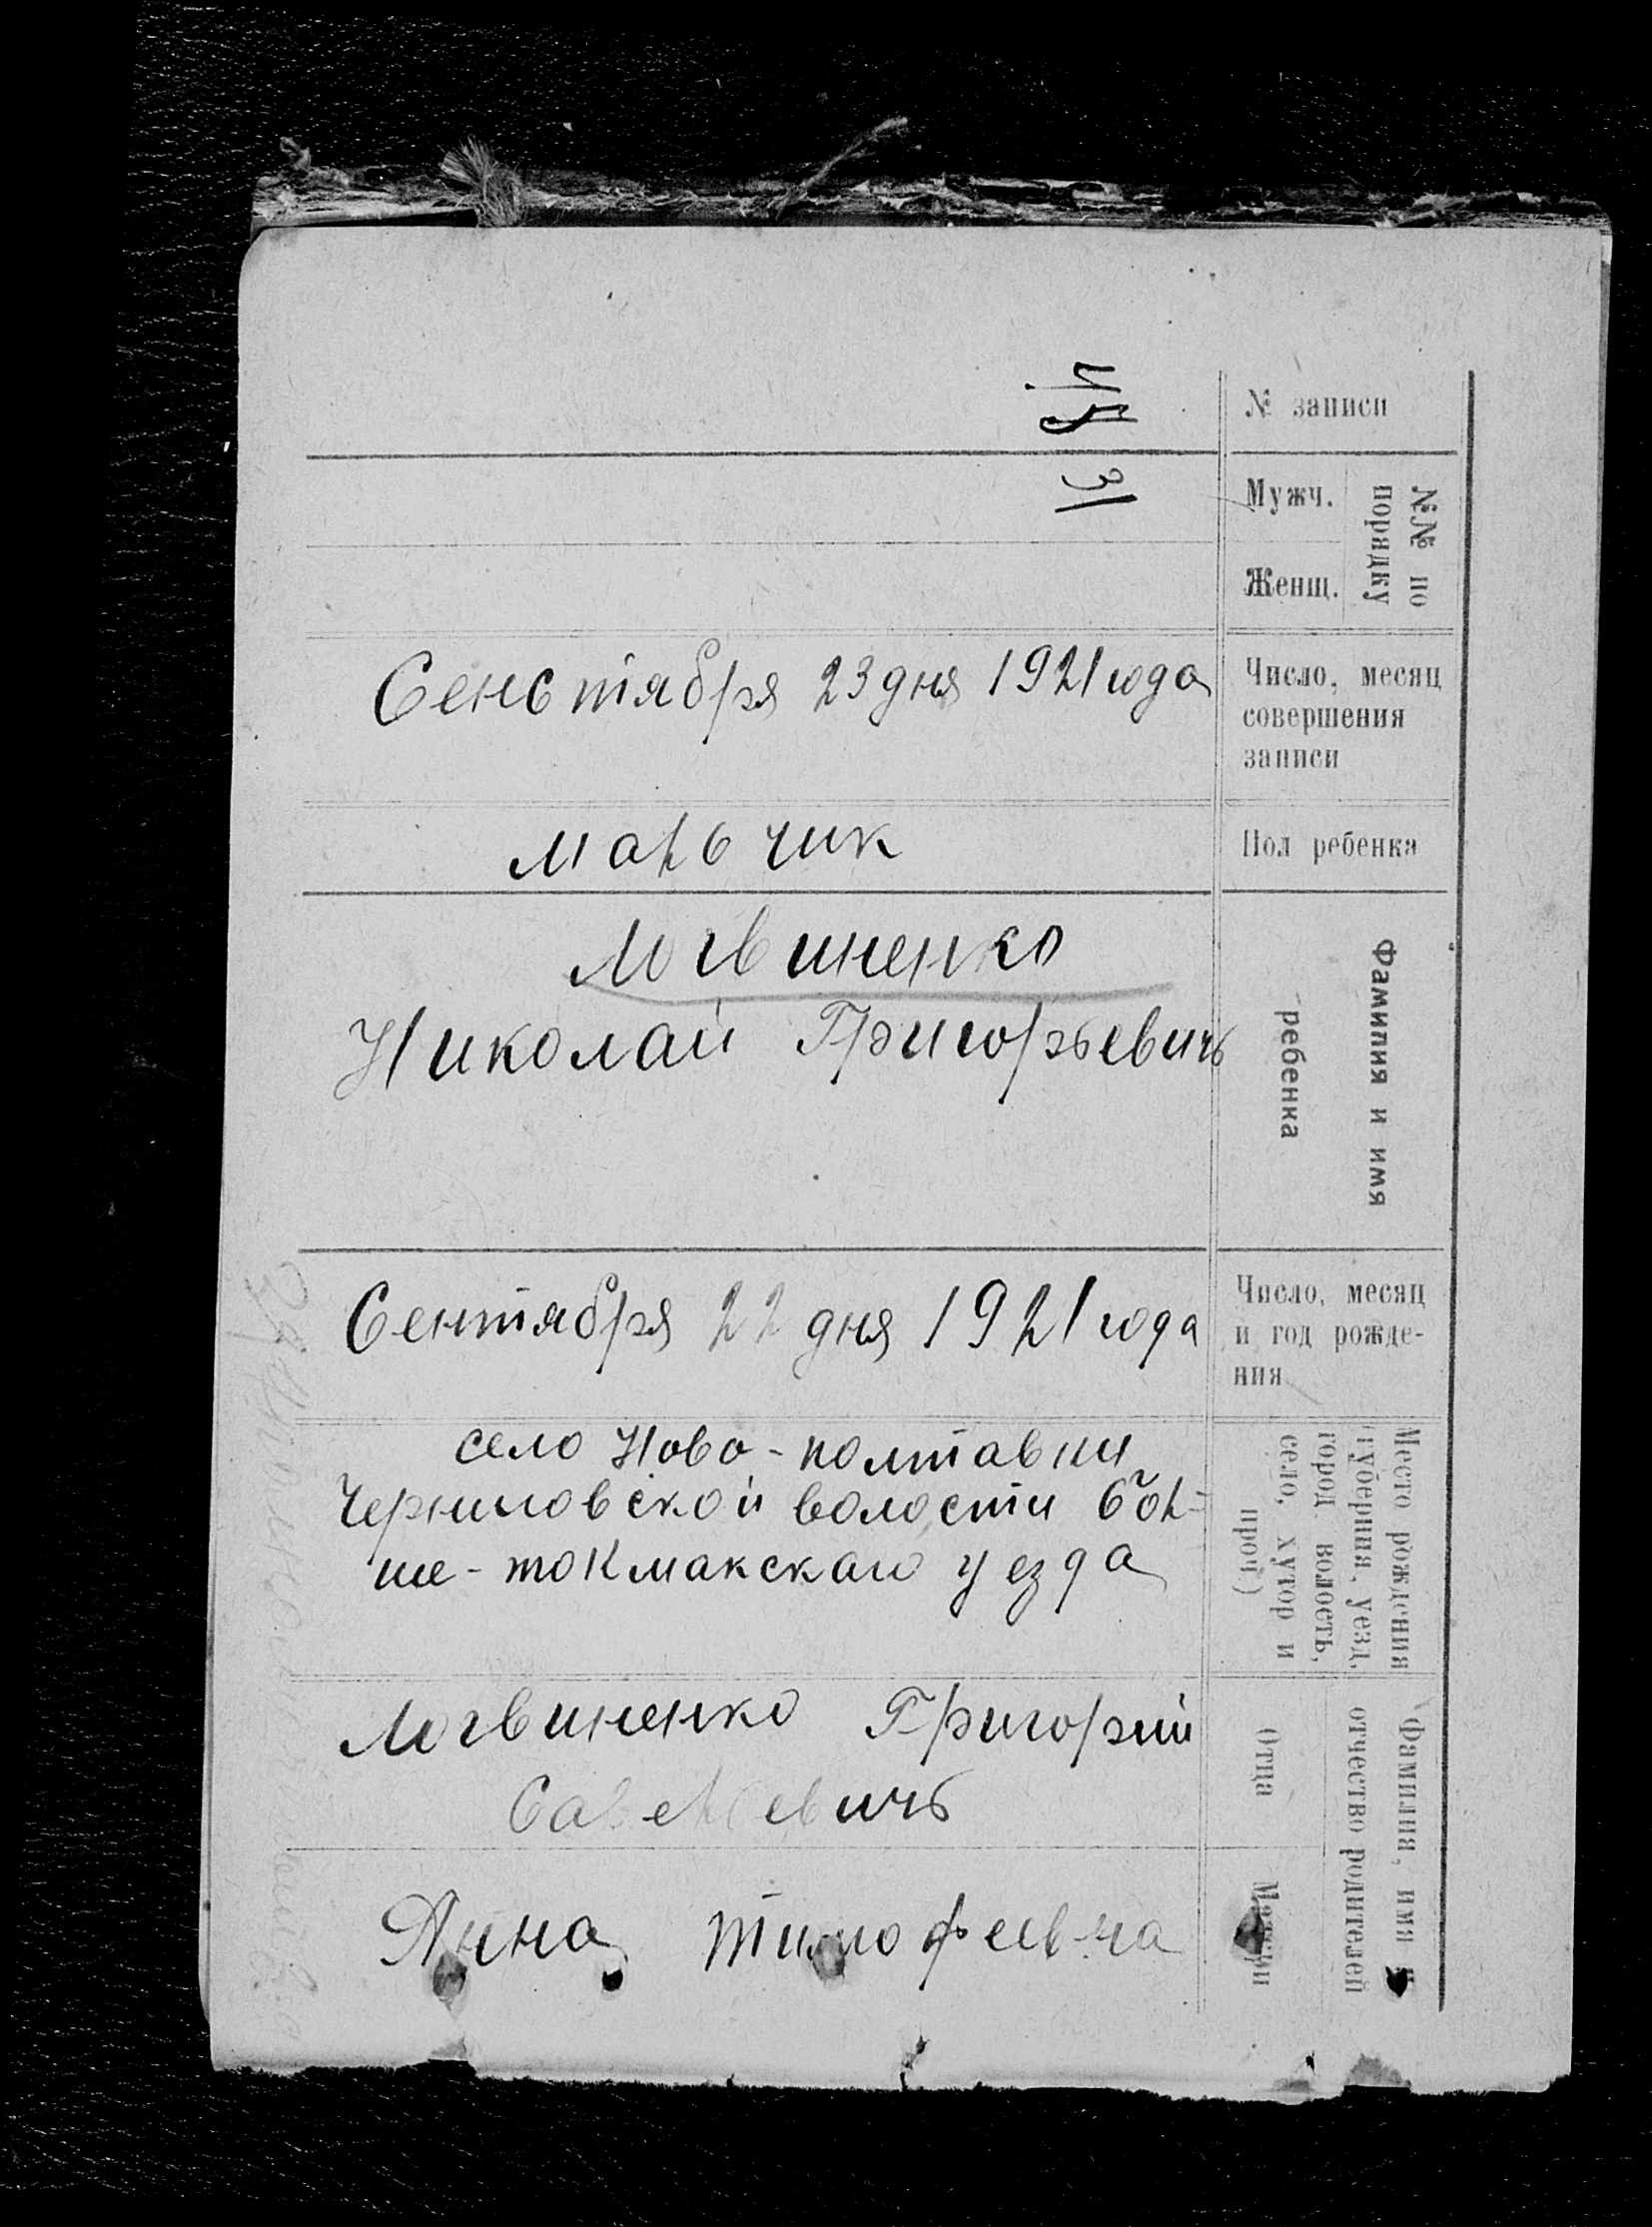 № записи
31
№№ по
порядку
Мужч.
Женщ.
Сенстября 23 дня 1921 года
Число, месяц
совершения
записи
мальчик
Пол ребенка
Логвиненко
Николай Григорьевичь
Фамилия и имя
ребенка
Сентября 22 дня 1921 года
Число, месяц
и год рожде-
ния
село Ново-полтавки
Черниговской волости бол-
ше-токмакскаго уезда
Место рождения
(губерния, уезд,
город, волость,
село, хутор и
проч)
Логвиненко Григорий
Савельевичь
Отца
Анна тимофеевна
Матери
Фамилия, имя и
отчество родителей